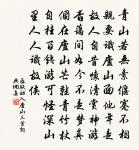 青山若無素偃蹇不相
親要識廬山面他年是
故人自昔懷清賞神游
杳靄間如今不是夢真
個在廬山芒鞋青竹杖
自挂百錢游可怪深山
里人人識故侯
蘇軾初入廬山三首詞